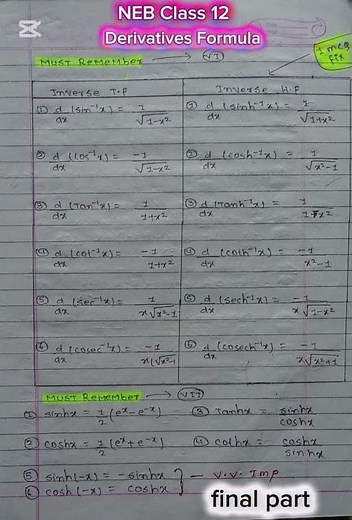 NEB Class 12
Derivatives Formula
MUST Remember → VI
1 mcq fix
Inverse T.F
Inverse H.F
① d/dx (sin⁻¹x) = 1/√1-x²
① d/dx (sinh⁻¹x) = 1/√1+x²
② d/dx (cos⁻¹x) = -1/√1-x²
② d/dx (cosh⁻¹x) = 1/√x²-1
③ d/dx (Tan⁻¹x) = 1/1+x²
③ d/dx (Tanh⁻¹x) = 1/1-x²
④ d/dx (cot⁻¹x) = -1/1+x²
④ d/dx (coth⁻¹x) = -1/x²-1
⑤ d/dx (sec⁻¹x) = 1/x√x²-1
⑤ d/dx (sech⁻¹x) = -1/x√1-x²
⑥ d/dx (cosec⁻¹x) = -1/x√x²-1
⑥ d/dx (cosech⁻¹x) = -1/x√x²+1
MUST Remember → VII
① sinhx = 1/2 (eˣ-e⁻ˣ) ③ Tanhx = sinhx/coshx
② coshx = 1/2 (eˣ+e⁻ˣ) ④ cothx = coshx/sinhx
⑤ sinh(-x) = -sinhx } - V.V. Imp
⑥ cosh(-x) = coshx
final part